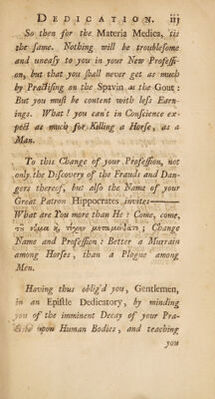 DEDICATION. iij
So then for the Materia Medica, 'tis
the same. Nothing will be troublesome
and uneasy to you in your New Professi-
on, but that you shall never get as much
by Practising on the Spavin as the Gout:
But you must be content with less Earn-
ings. What! you can't in Conscience ex-
pect as much for Killing a Horse, as a
Man.
To this Change of your Profession, not
only the Discovery of the Frauds and Dan-
gers thereof, but also the Name of your
Great Patron Hippocrates invites———
What are You more than He? Come, come,
Change
Name and Profession: Better a Murrain
among Horses, than a Plague among
Men.
Having thus oblig'd you, Gentlemen,
in an Epistle Dedicatory, by minding
you of the imminent Decay of your Pra-
upon Human Bodies, and teaching
you